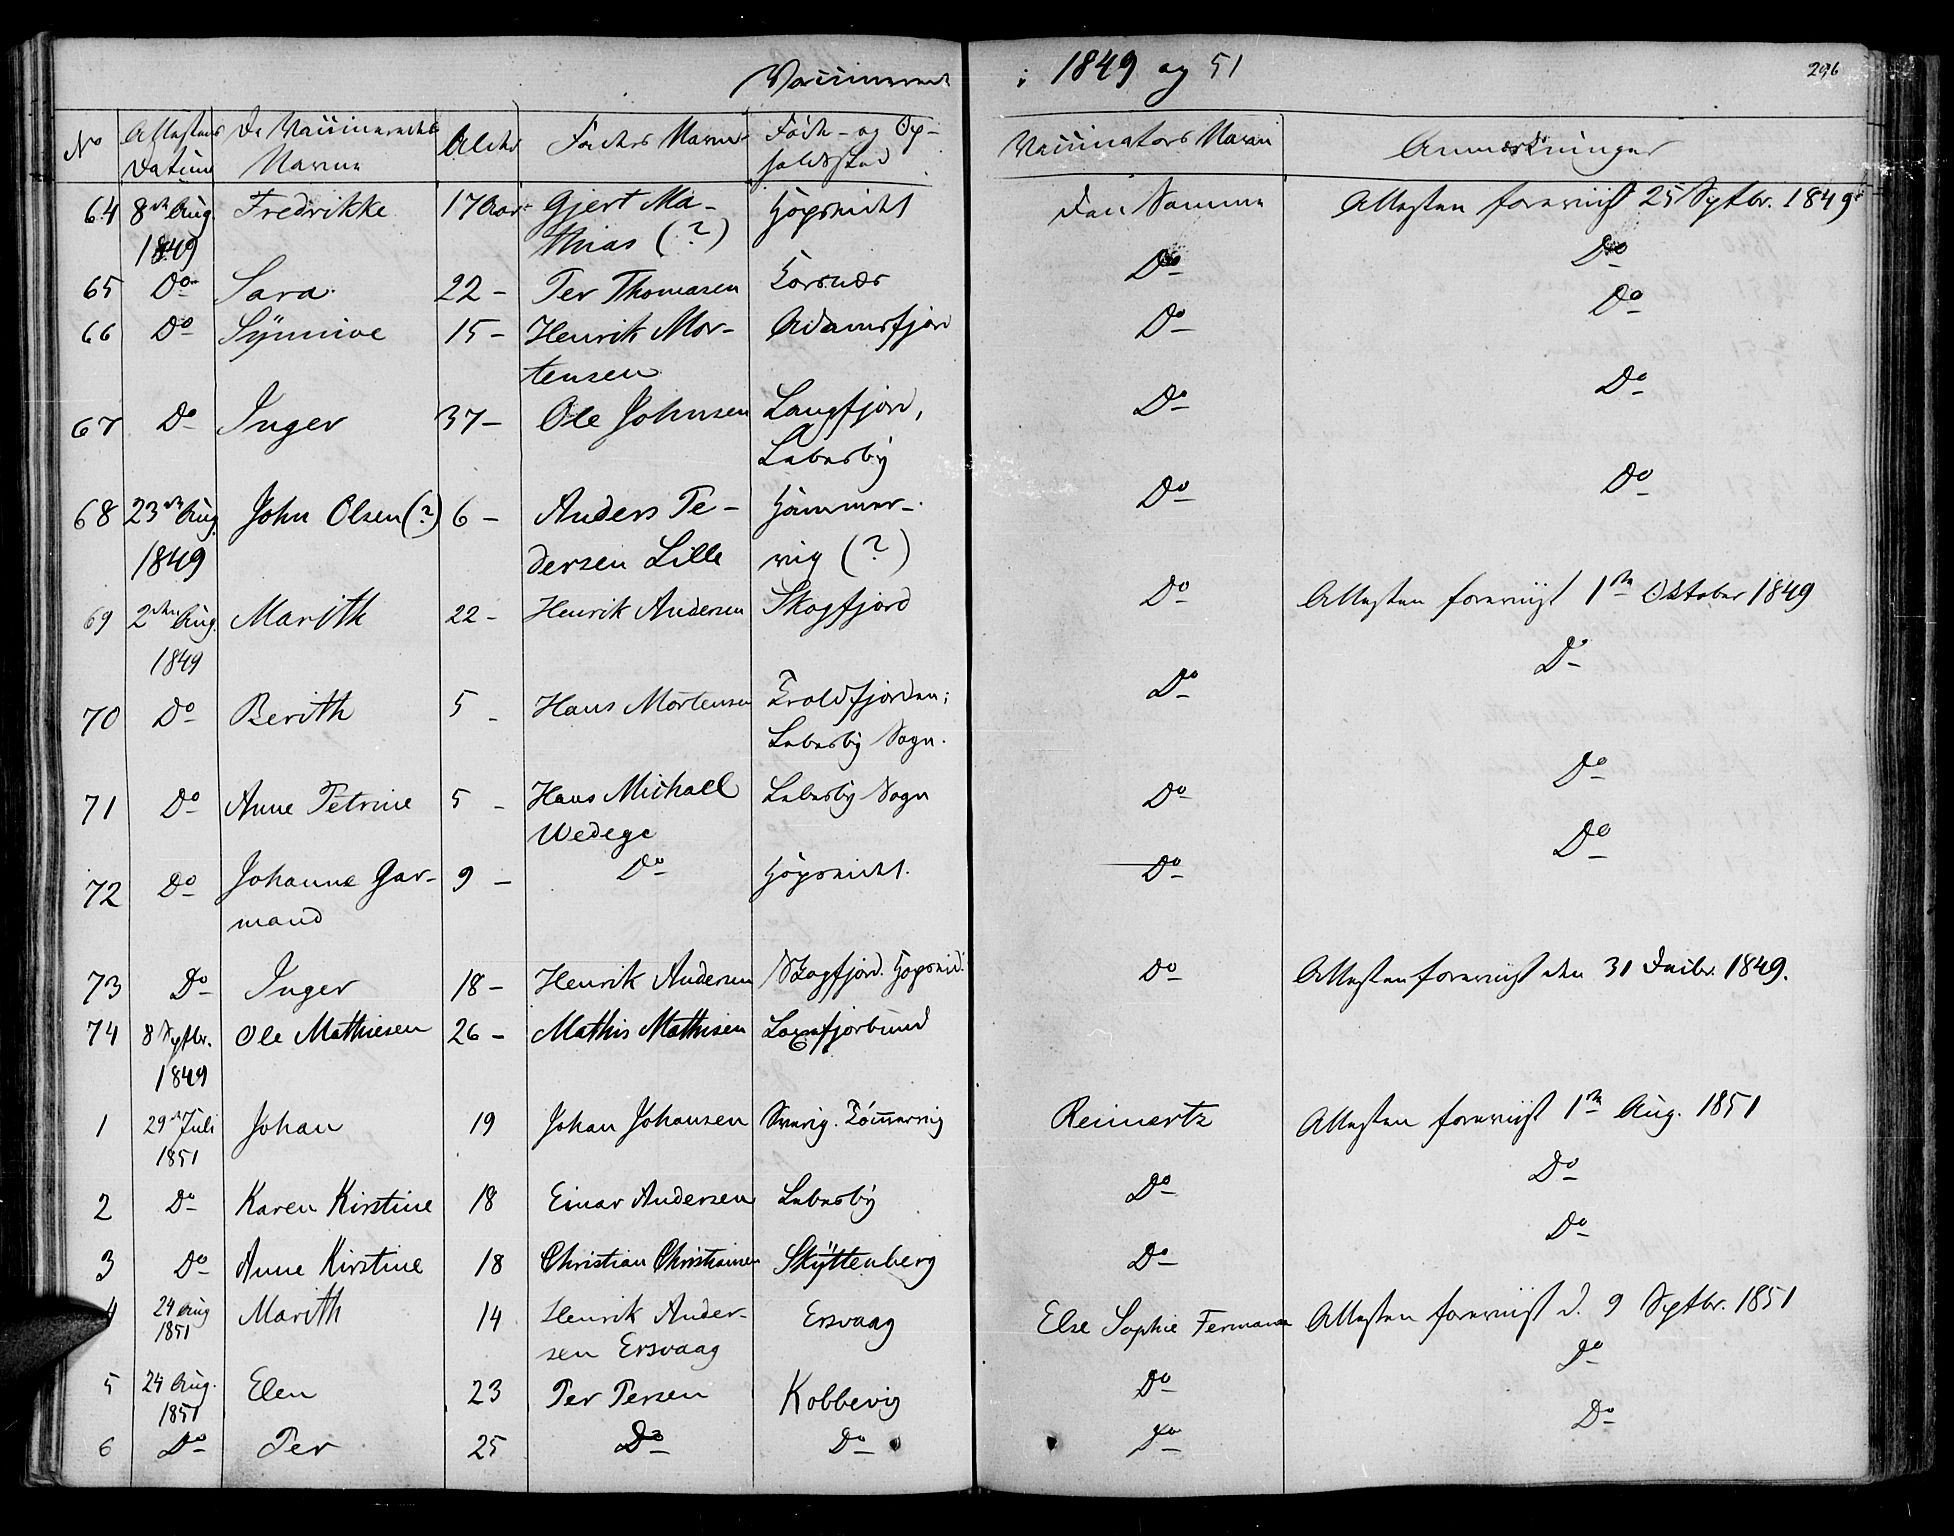 Vaccinerede i 1849 og 51
296
No Attestens Datum De Vaccineredes Navne Alder Faders Navne Føde- og Opholdssted Vaccinators Navn Anmærkninger
64 8de Aug. Fredrikke 17 Aar Gjert Ma- Hopseidet Den Samme Attesten foreviist 25 Septbr. 1849
1849 thias (?) Do Do
65 Do Sara 22 - Per Thomasen Korsnæs Do
66 Do Synnive 15 - Henrik Mor- Adamsfjord Do
tensen Do
67 Do Inger 37 - Ole Johnsen Langfjord, Do
Lebesby
68 23de Aug. John Olsen (?) 6 - Anders Pe- Hammer- Do Do
1849 dersen Lille vig (?)
69 2den Aug. Marith 22 - Henrik Andersen Skogfjord Do Attesten foreviist 1ste Oktober 1849
1849 Do
70 Do Berith 5 - Hans Mortensen Troldfjorden; Do
Lebesby Sogn.
71 Do Anne Petrine 5 - Hans Michael Lebesby Sogn Do Do
Wedege Do
72 Do Johanne Gar- 9 - Do Hopseidet. Do
mand
73 Do Inger 18 - Henrik Andersen Skogfjord. Hopseid. Do Attesten foreviist den 31 Decbr. 1849.
74 8 Septbr. Ole Mathiesen 26 - Mathis Mathisen
1849
1 29de Juli Johan 19 Johan Johansen Reinertz Attesten foreviist 1ste Aug. 1851
1851 Do
2 Do Karen Kirstine 18 Einar Andersen Lebesby Do
Do
3 Do Anne Kirstine 18 Christian Christiansen Skyttenberg Do
4 24 Aug Marith 14 Henrik Ander- Ersvaag Else Sophie Fermann Attesten foreviist d. 9 Septbr. 1851
1851 sen Ersvaag Do
5 24 Aug. Elen 23 Per Persen Kobbevig Do
1851 Do
6 Do Per 25 Do Do Do